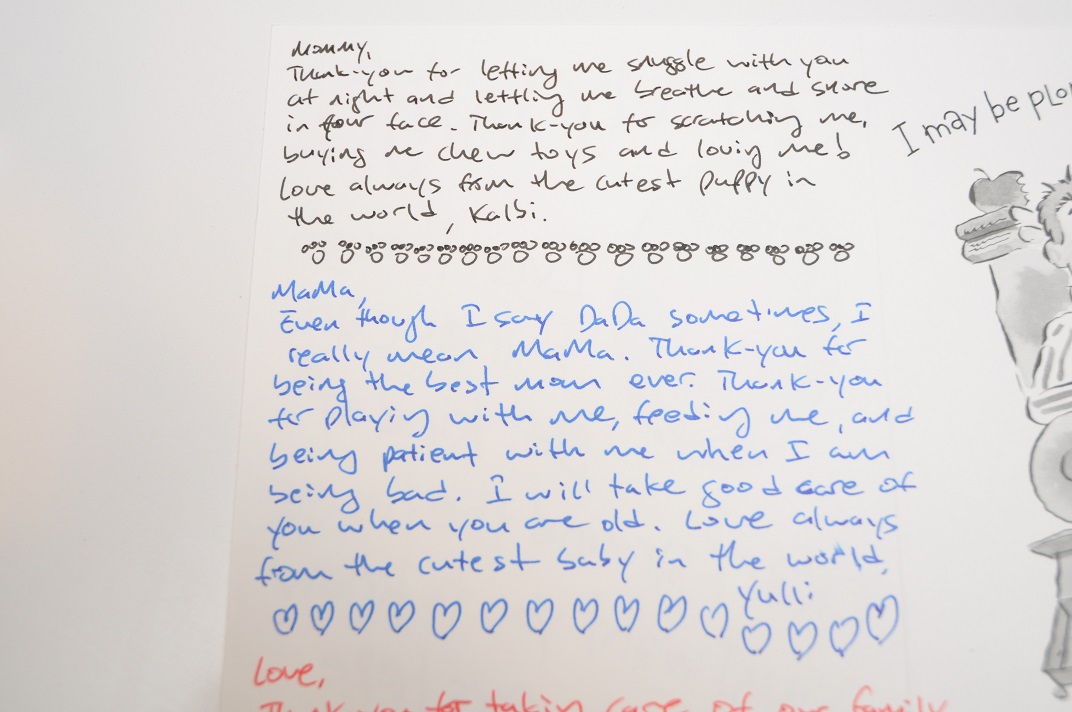 Mommy,
Thank-you for letting me snuggle with you
at night and lettling me breathe and snore
in your face. Thank-you for scratching me,
buying me chew toys and loving me!
Love always from the cutest puppy in
the world, Kalbi.
MaMa,
Even though I say DaDa sometimes, I
really mean MaMa. Thank-you for
being the best mom ever. Thank-you
for playing with me, feeding me, and
being patient with me when I am
being bad. I will take good care of
you when you are old. Love always
from the cutest baby in the world,
Yulli
Love,
Thank you for taking care of our family
I may be